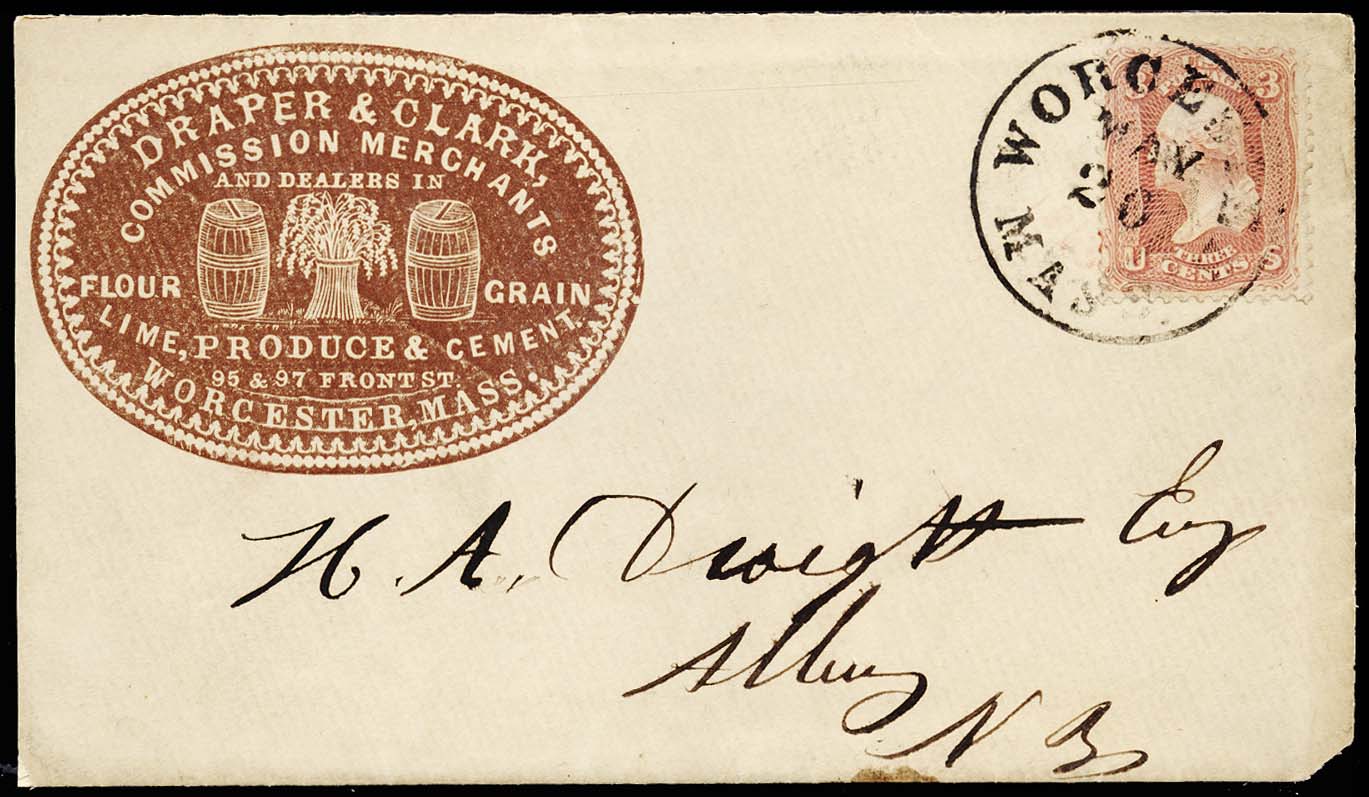 DRAPER & CLARK,
COMMISSION MERCHANTS
AND DEALERS IN
FLOUR GRAIN
LIME, PRODUCE & CEMENT.
95 & 97 FRONT ST.
WORCESTER, MASS.
WORCESTER
MAY
20
MASS.
3
U S
THREE
CENTS
H. A. Dwight Esq
Albany
N Y